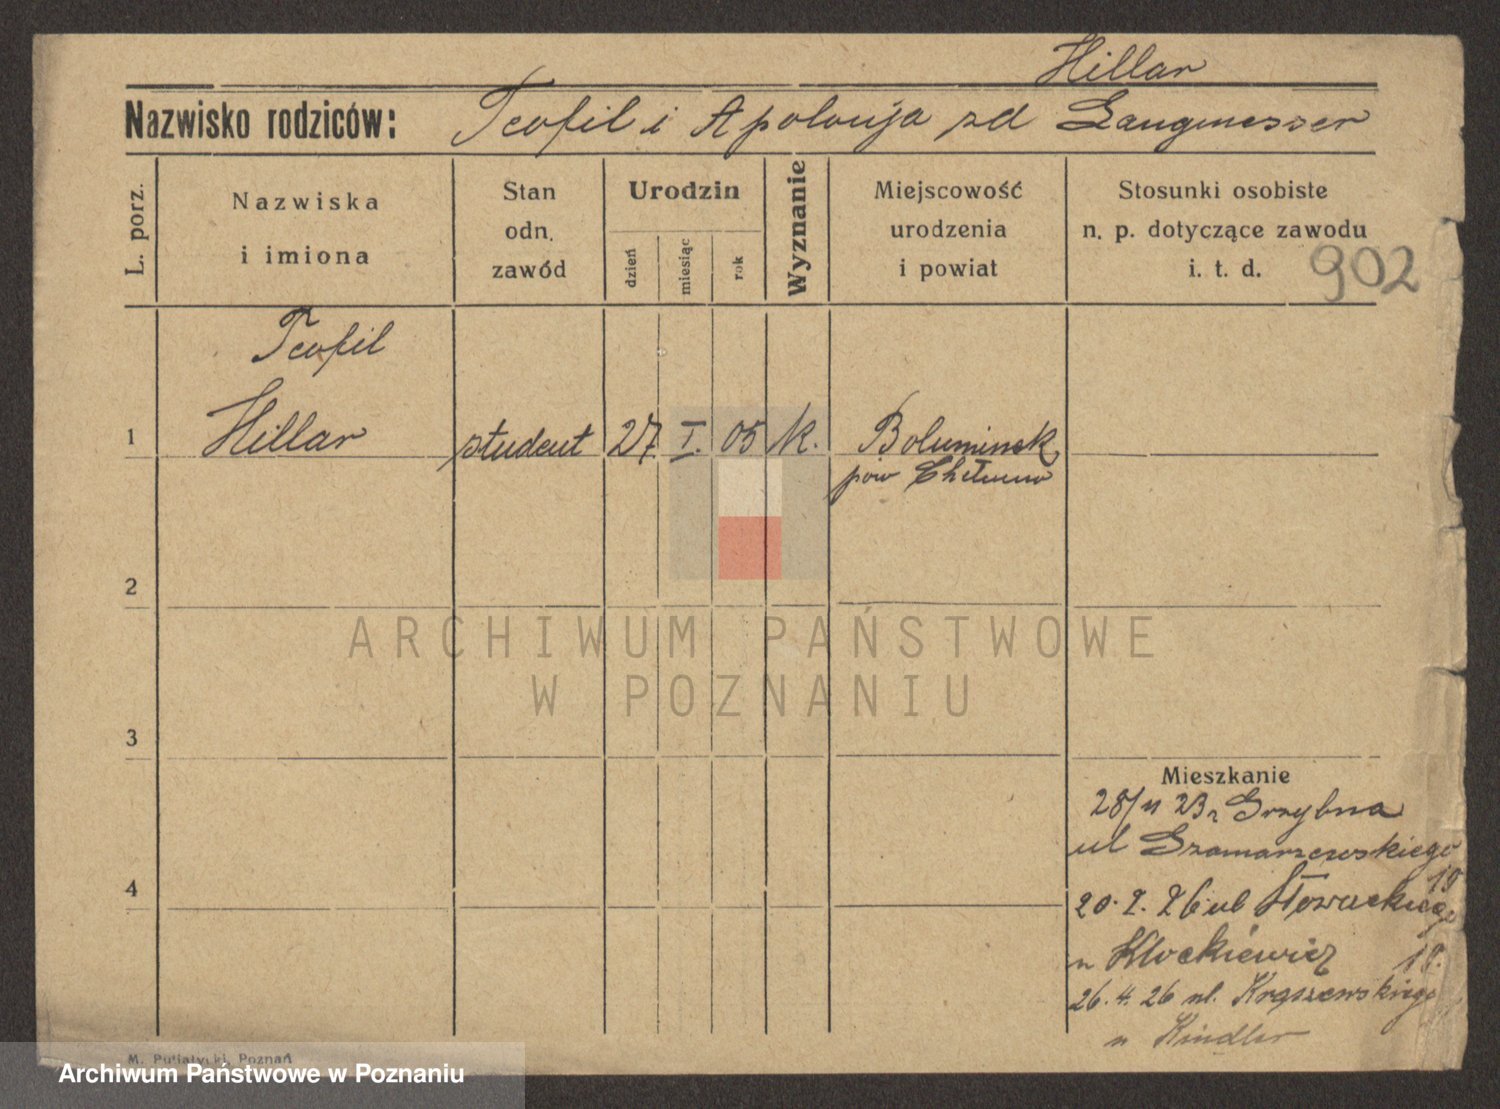 Hillar
Nazwisko rodziców: Teofil i Apolonja zd Langmesser
L. porz.
Nazwiska
i imiona
Stan
odn.
zawód
Urodzin
dzień
miesiąc
rok
Wyznanie
Miejscowość
urodzenia
i powiat
Stosunki osobiste
n. p. dotyczące zawodu
i. t. d.
902
Teofil
1 Hillar student 27 I. 05 k. Boluminek
pow Chełmno
2
ARCHIWUM PAŃSTWOWE
W POZNANIU
3
Mieszkanie
28/11 23 r Grzybna
ul Szamarzewskiego
19
4
20. 2. 26 ul Słowackiego
u Klockiewicz 18.
26. 4. 26 ul. Kraszewskiego
u Kindler
M. Putiatycki, Poznań
Archiwum Państwowe w Poznaniu